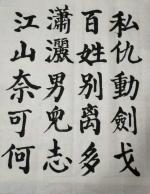 私仇動劍戈
百姓別离多
瀟灑男兒志
江山奈可何